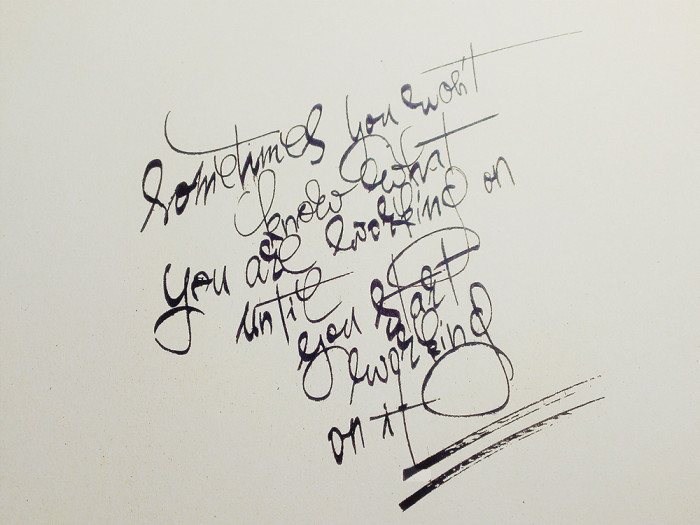 Sometimes you won't
know what
you are working on
until
you start
working
on it